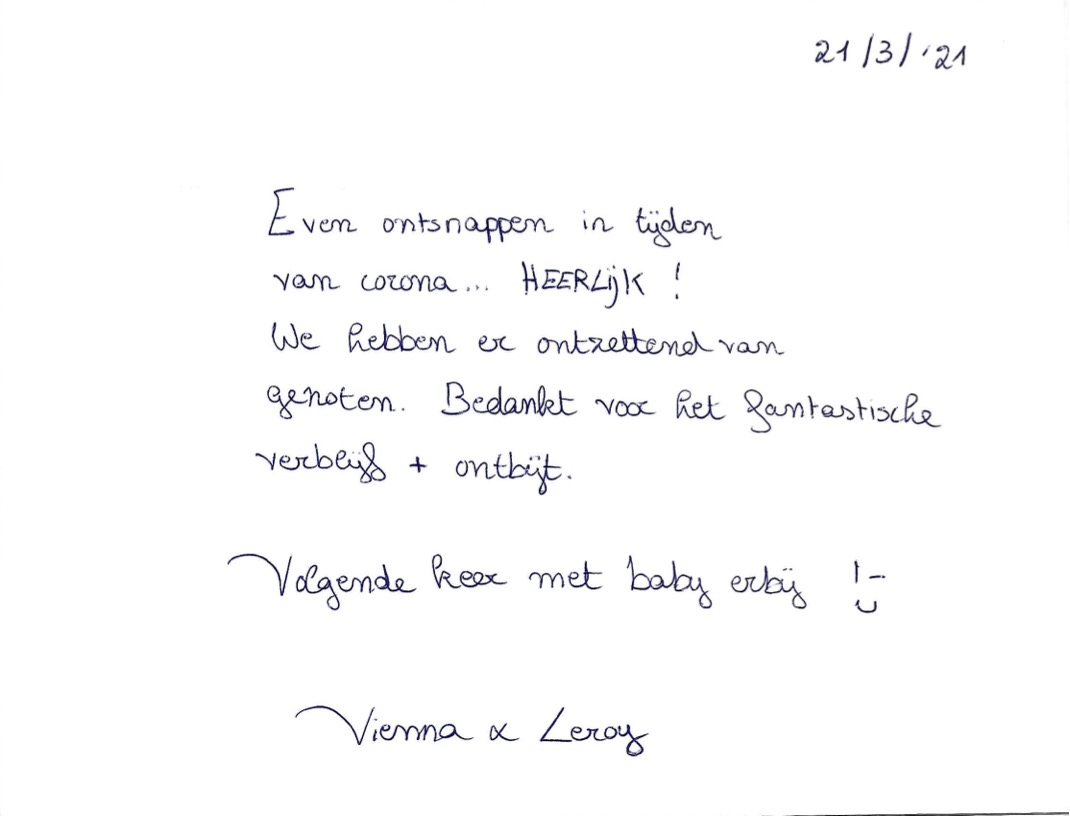 21/3/'21
Even ontsnappen in tijden
van corona... HEERLijK !
We hebben er ontzettend van
genoten. Bedankt voor het fantastische
verblijf + ontbijt.
Volgende keer met baby erbij !-
Vienna & Leroy